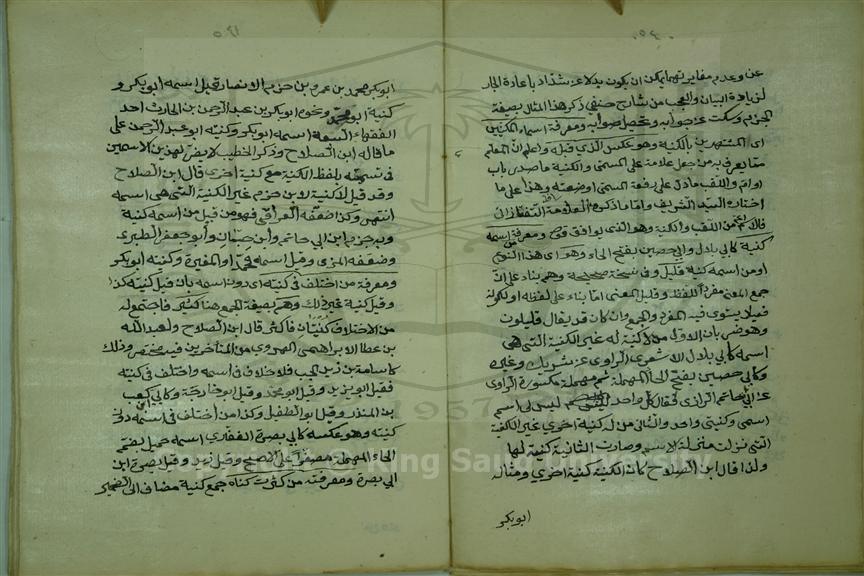 عن وعدم مغايرتهما يمكن ان يكون بدلا عن بشداد باعادة الجار
لزيادة البيان والعجب من شارح حنفي ذكر هذا المثال بصيغة
الجزم وسكت عن جوابه وتحصل صوابه ومعرفة اسماء المكنيين
اى المشتهرين بالكنية وهو عكس الذي قبله واعلم ان المعلم
ما يعرف به من جعل علامة على المسمى والكنية ما صدر باب
او ام واللقب ما دل على رفعة المسمى او ضعته وهذا على ما
اختاره السيد الشريف واما ما ذكره العلامة التفتازاني
فالاسم اعم من اللقب والكنية وهو الذى يوافق قوله ومعرفة من اسمه
كنية كابي بلال وابي حصين بفتح الحاء وهو اى هذا النوع
او من اسمه كنية قليل وفي نسخة صحيحة وهم بناء على ان
جمع المعنى مفرد اللفظ وقليل المعنى اما بناء على لفظه او لكونه
فعيلا يستوى فيه المفرد والجمع وان كان قد يقال قليلون
وهو ضربان الاول من لا كنية له غير الكنية التى هى
اسمه كابي بلال الاشعرى الراوى عن شريك وغيره
وكابي حصين بفتح الحاء المهملة ثم مهملة مكسورة الراوى
عن ابي حاتم الرازى فقال كل واحد ليس لى اسم
اسمى وكنيتى واحد والثانى من له كنية اخرى غير الكنية
التى نزلت منزلة الاسم وصارت الثانية كنية لها
ولذا قال ابن الصلاح كان الكنية كنية اخرى ومثاله
ابو بكر
ابو بكر محمد بن عمرو بن حزم الانصار قيل اسمه ابو بكر و
كنية ابو محمد ونحوه ابو بكر بن عبد الرحمن بن الحارث احد
الفقهاء السبعة اسمه ابو بكر وكنيته ابو عبد الرحمن على
ما قاله ابن الصلاح وذكر الخطيب لا يضر لهذين الاسمين
في تسميته بلفظ الكنية مع كنية اخرى قال ابن الصلاح
وقد قيل لا كنية لابن حزم غير الكنية التى هى اسمه
انتهى وكذا ضعفه العراقي فهو من قبل من اسمه كنية
وبه جزم ابن ابي حاتم وابن حبان وابو جعفر الطبرى
وضعفه المزى وقيل اسمه محمد او المغيرة وكنيته ابو بكر
ومعرفة من اختلف في كنيته اى دون اسمه بان قيل كنيته كذا
وقيل كنية غير ذلك وهم بصيغة الجمع هنا كثير فاجتمع له
من الاختلاف كنيتان فاكثر قال ابن الصلاح ولعبد الله
بن عطا الابراهيمى الهروى من المتاخرين فيه مختصر وذلك
كاسامة بن زيد الحب فلا خلاف في اسمه واختلف في كنيته
فقيل ابو زيد وقيل ابو محمد وقيل ابو خارجة وكابي بن كعب
بن المنذر وقيل ابو الطفيل وكذا من اختلف في اسمه دون
كنيته وهو عكسه كابي بصرة الغفارى اسمه حميل بضم
الحاء المهملة مصغرا على الاصح وقيل زيد وقيل بصرة ابن
ابي بصرة ومعرفته من كثرت كناه جمع كنية مضاف الى الضمير